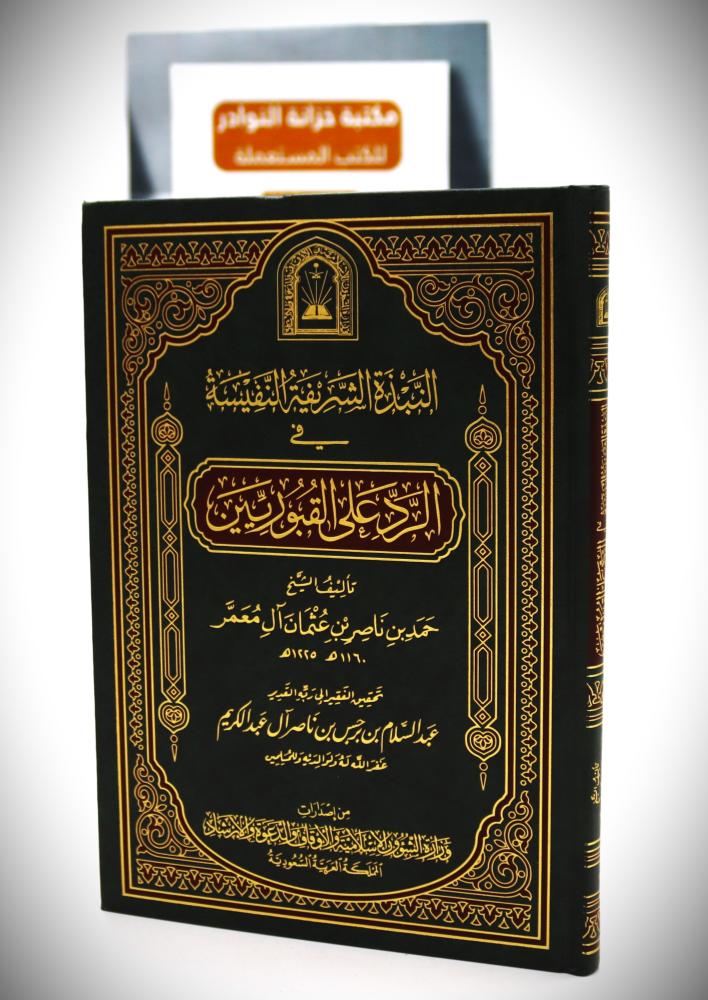 مكتبة خزانة النوادر
للكتب المستعملة
النبذة الشريفة النفيسة
في
الرد على القبوريين
تأليف الشيخ
حمد بن ناصر بن عثمان آل معمر
١١٦٠هـ ١٢٢٥هـ
تحقيق الفقير إلى ربه القدير
عبد السلام بن برجس بن ناصر آل عبد الكريم
غفر الله له ولوالديه وللمسلمين
من إصدارات
وزارة الشؤون الإسلامية والأوقاف والدعوة والإرشاد
المملكة العربية السعودية